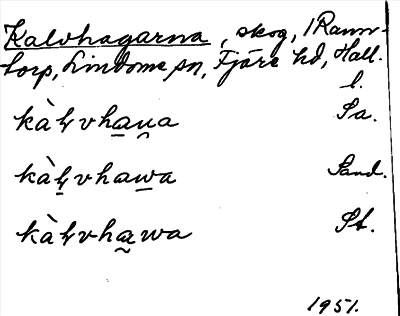 Kalvhagarna, skog, 1 Rann-
torp, Lindome sn, Fjäre hd, Hall.
l.
kàłvhau̯a Sa.
kàłvhawa Sand.
kàłvhawa St.
1951.